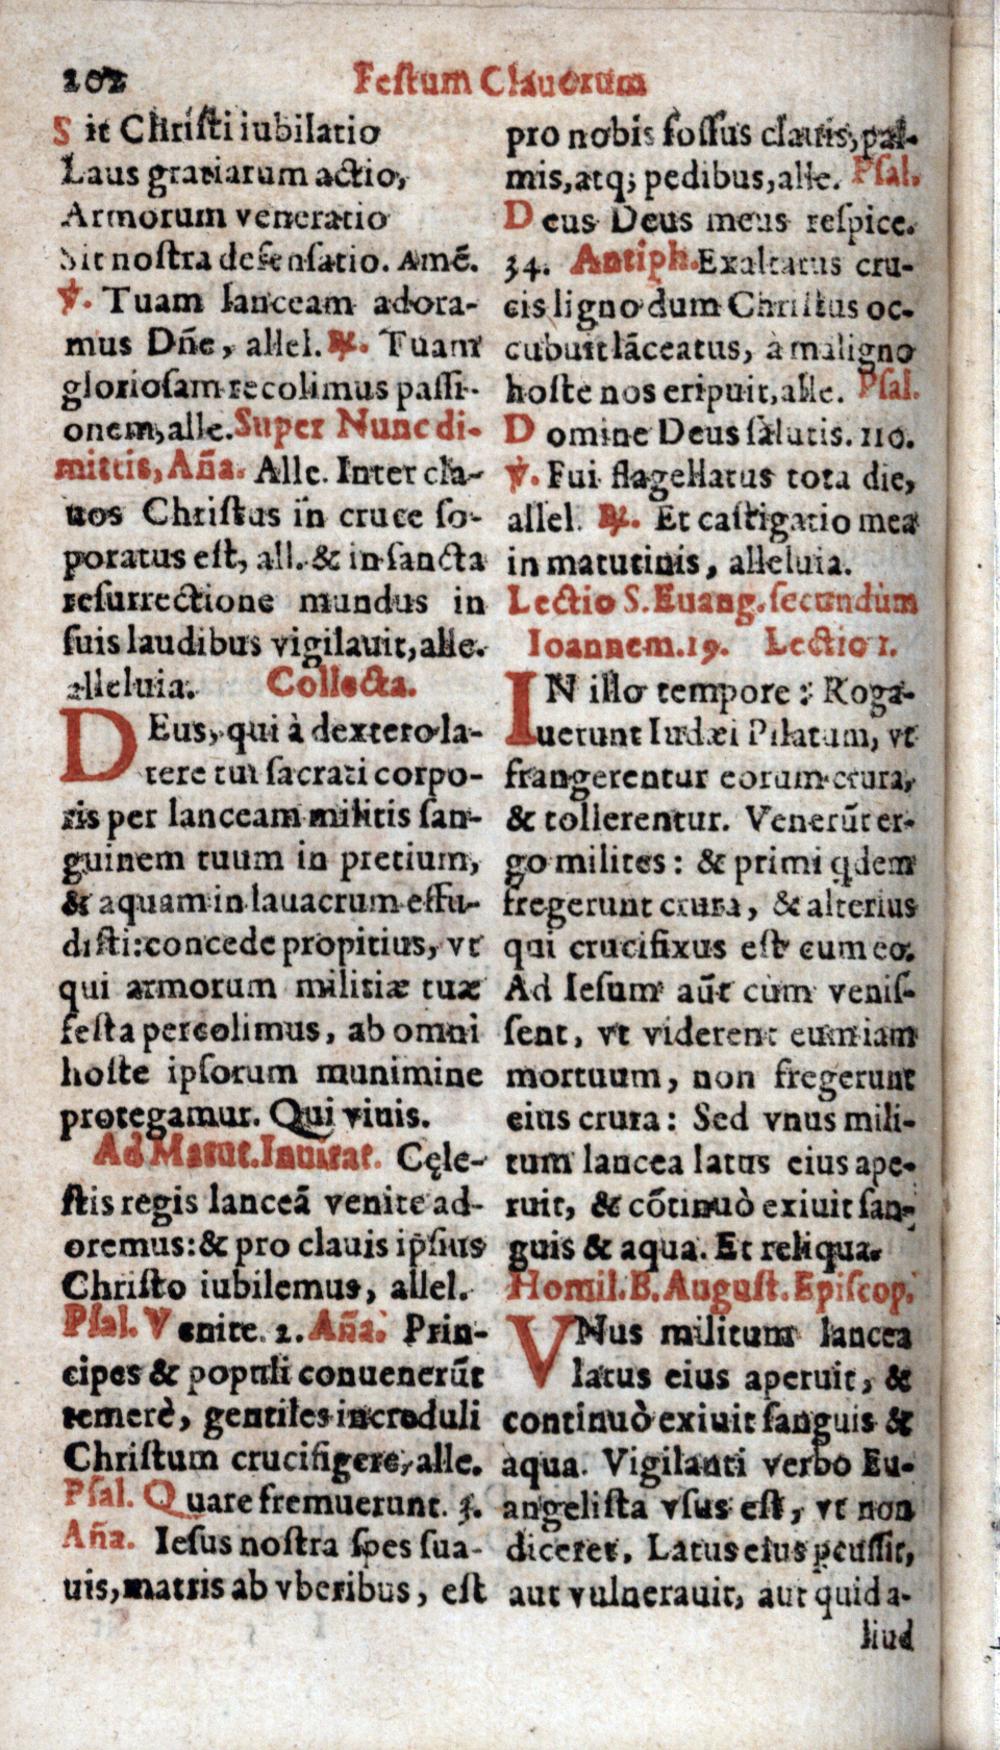 202
Festum Clauorum
Sit Christi iubilatio
Laus gratiarum actio,
Armorum veneratio
Sit nostra defensatio. Amē.
℣. Tuam lanceam adora-
mus Dñe, allel. ℟. Tuam
gloriosam recolimus passi-
onem, alle. Super Nunc di-
mittis, Aña. Alle. Inter cla-
uos Christus in cruce so-
poratus est, all. & in sancta
resurrectione mundus in
suis laudibus vigilauit, alle.
alleluia. Collecta.
DEus, qui à dextero la-
tere tui sacrati corpo-
ris per lanceam militis san-
guinem tuum in pretium,
& aquam in lauacrum effu-
disti: concede propitius, vt
qui armorum militiæ tuæ
festa percolimus, ab omni
hoste ipsorum munimine
protegamur. Qui viuis.
Ad Matut. Inuitat. Cęle-
stis regis lanceā venite ad-
oremus: & pro clauis ipsius
Christo iubilemus, allel.
Psal. Venite. 2. Aña. Prin-
cipes & populi conuenerūt
temerè, gentiles increduli
Christum crucifigere, alle.
Psal. Quare fremuerunt. 3.
Aña. Iesus nostra spes sua-
uis, matris ab vberibus, est
pro nobis fossus clauis, pal-
mis, atq; pedibus, alle. Psal.
Deus Deus meus respice.
34. Antiph. Exaltatus cru-
cis ligno dum Christus oc-
cubuit lāceatus, à maligno
hoste nos eripuit, alle. Psal.
Domine Deus salutis. 110.
℣. Fui flagellatus tota die,
allel. ℟. Et castigatio mea
in matutinis, alleluia.
Lectio S. Euang. secundùm
Ioannem. 19. Lectio 1.
IN illo tempore: Roga-
uerunt Iudæi Pilatum, vt
frangerentur eorum crura,
& tollerentur. Venerūt er-
go milites: & primi qdem
fregerunt crura, & alterius
qui crucifixus est cum eo.
Ad Iesum aūt cùm venis-
sent, vt viderent eum iam
mortuum, non fregerunt
eius crura: Sed vnus mili-
tum lancea latus eius ape-
ruit, & cōtinuò exiuit san-
guis & aqua. Et reliqua.
Homil. B. August. Episcop.
VNus militum lancea
latus eius aperuit, &
continuò exiuit sanguis &
aqua. Vigilanti verbo Eu-
angelista vsus est, vt non
diceret, Latus eius pcussit,
aut vulnerauit, aut quid a-
liud